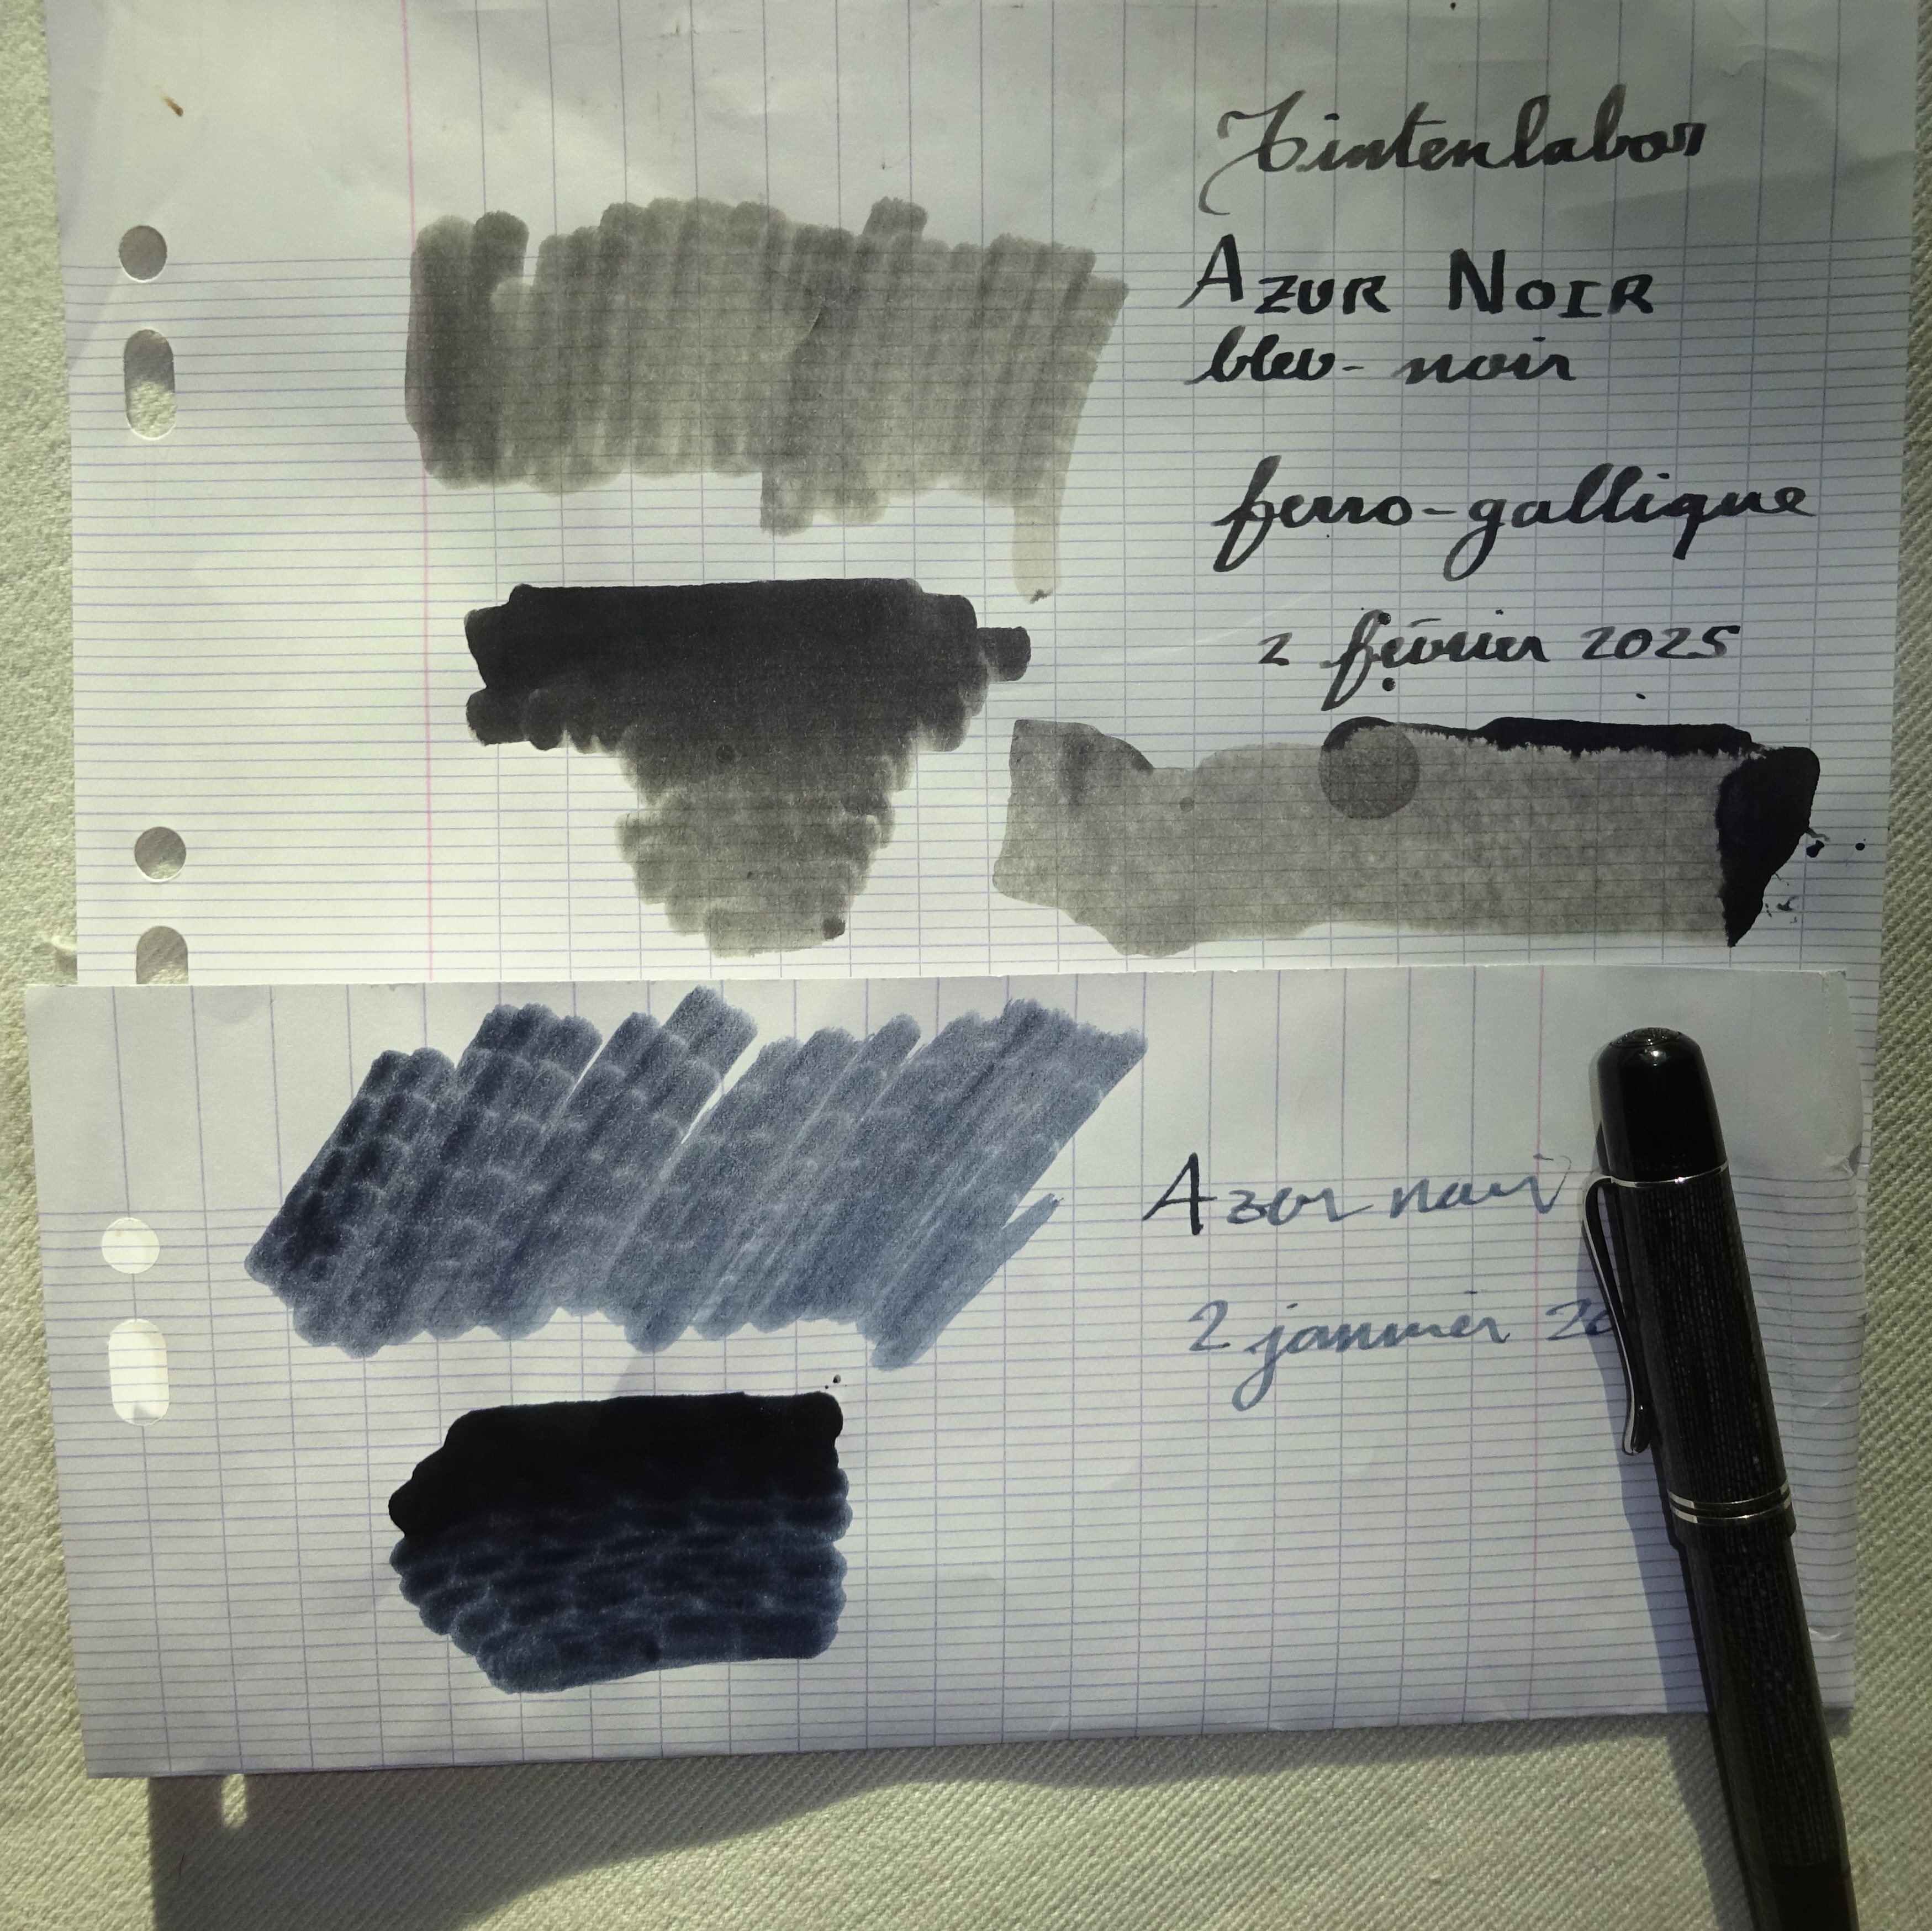 Tintenlabor
AZUR NOIR
bleu-noir
ferro-gallique
2 février 2025
Azur noir
2 janvier 20